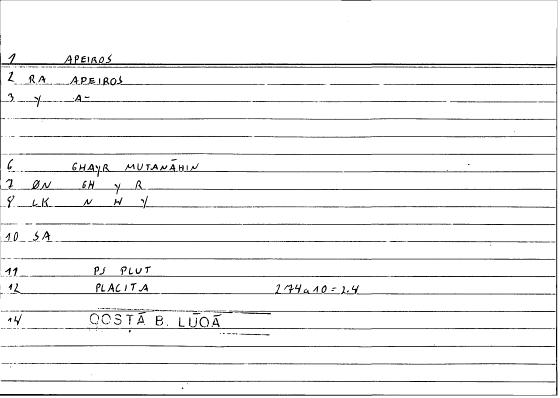 1 APEIROS
2 RA APEIROS
3 Y A-
6 GHAYR MUTANĀHIN
7 ØN GH Y R
8 LK N H Y
10 SA
11 PS PLUT
12 PLACITA 274a10=2.4
14 QOSṬĀ B. LŪQĀ